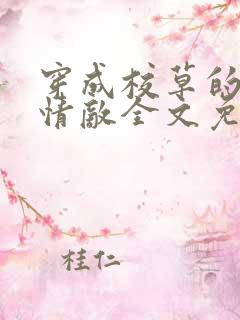 穿成校草的
情敌全文免
桂仁